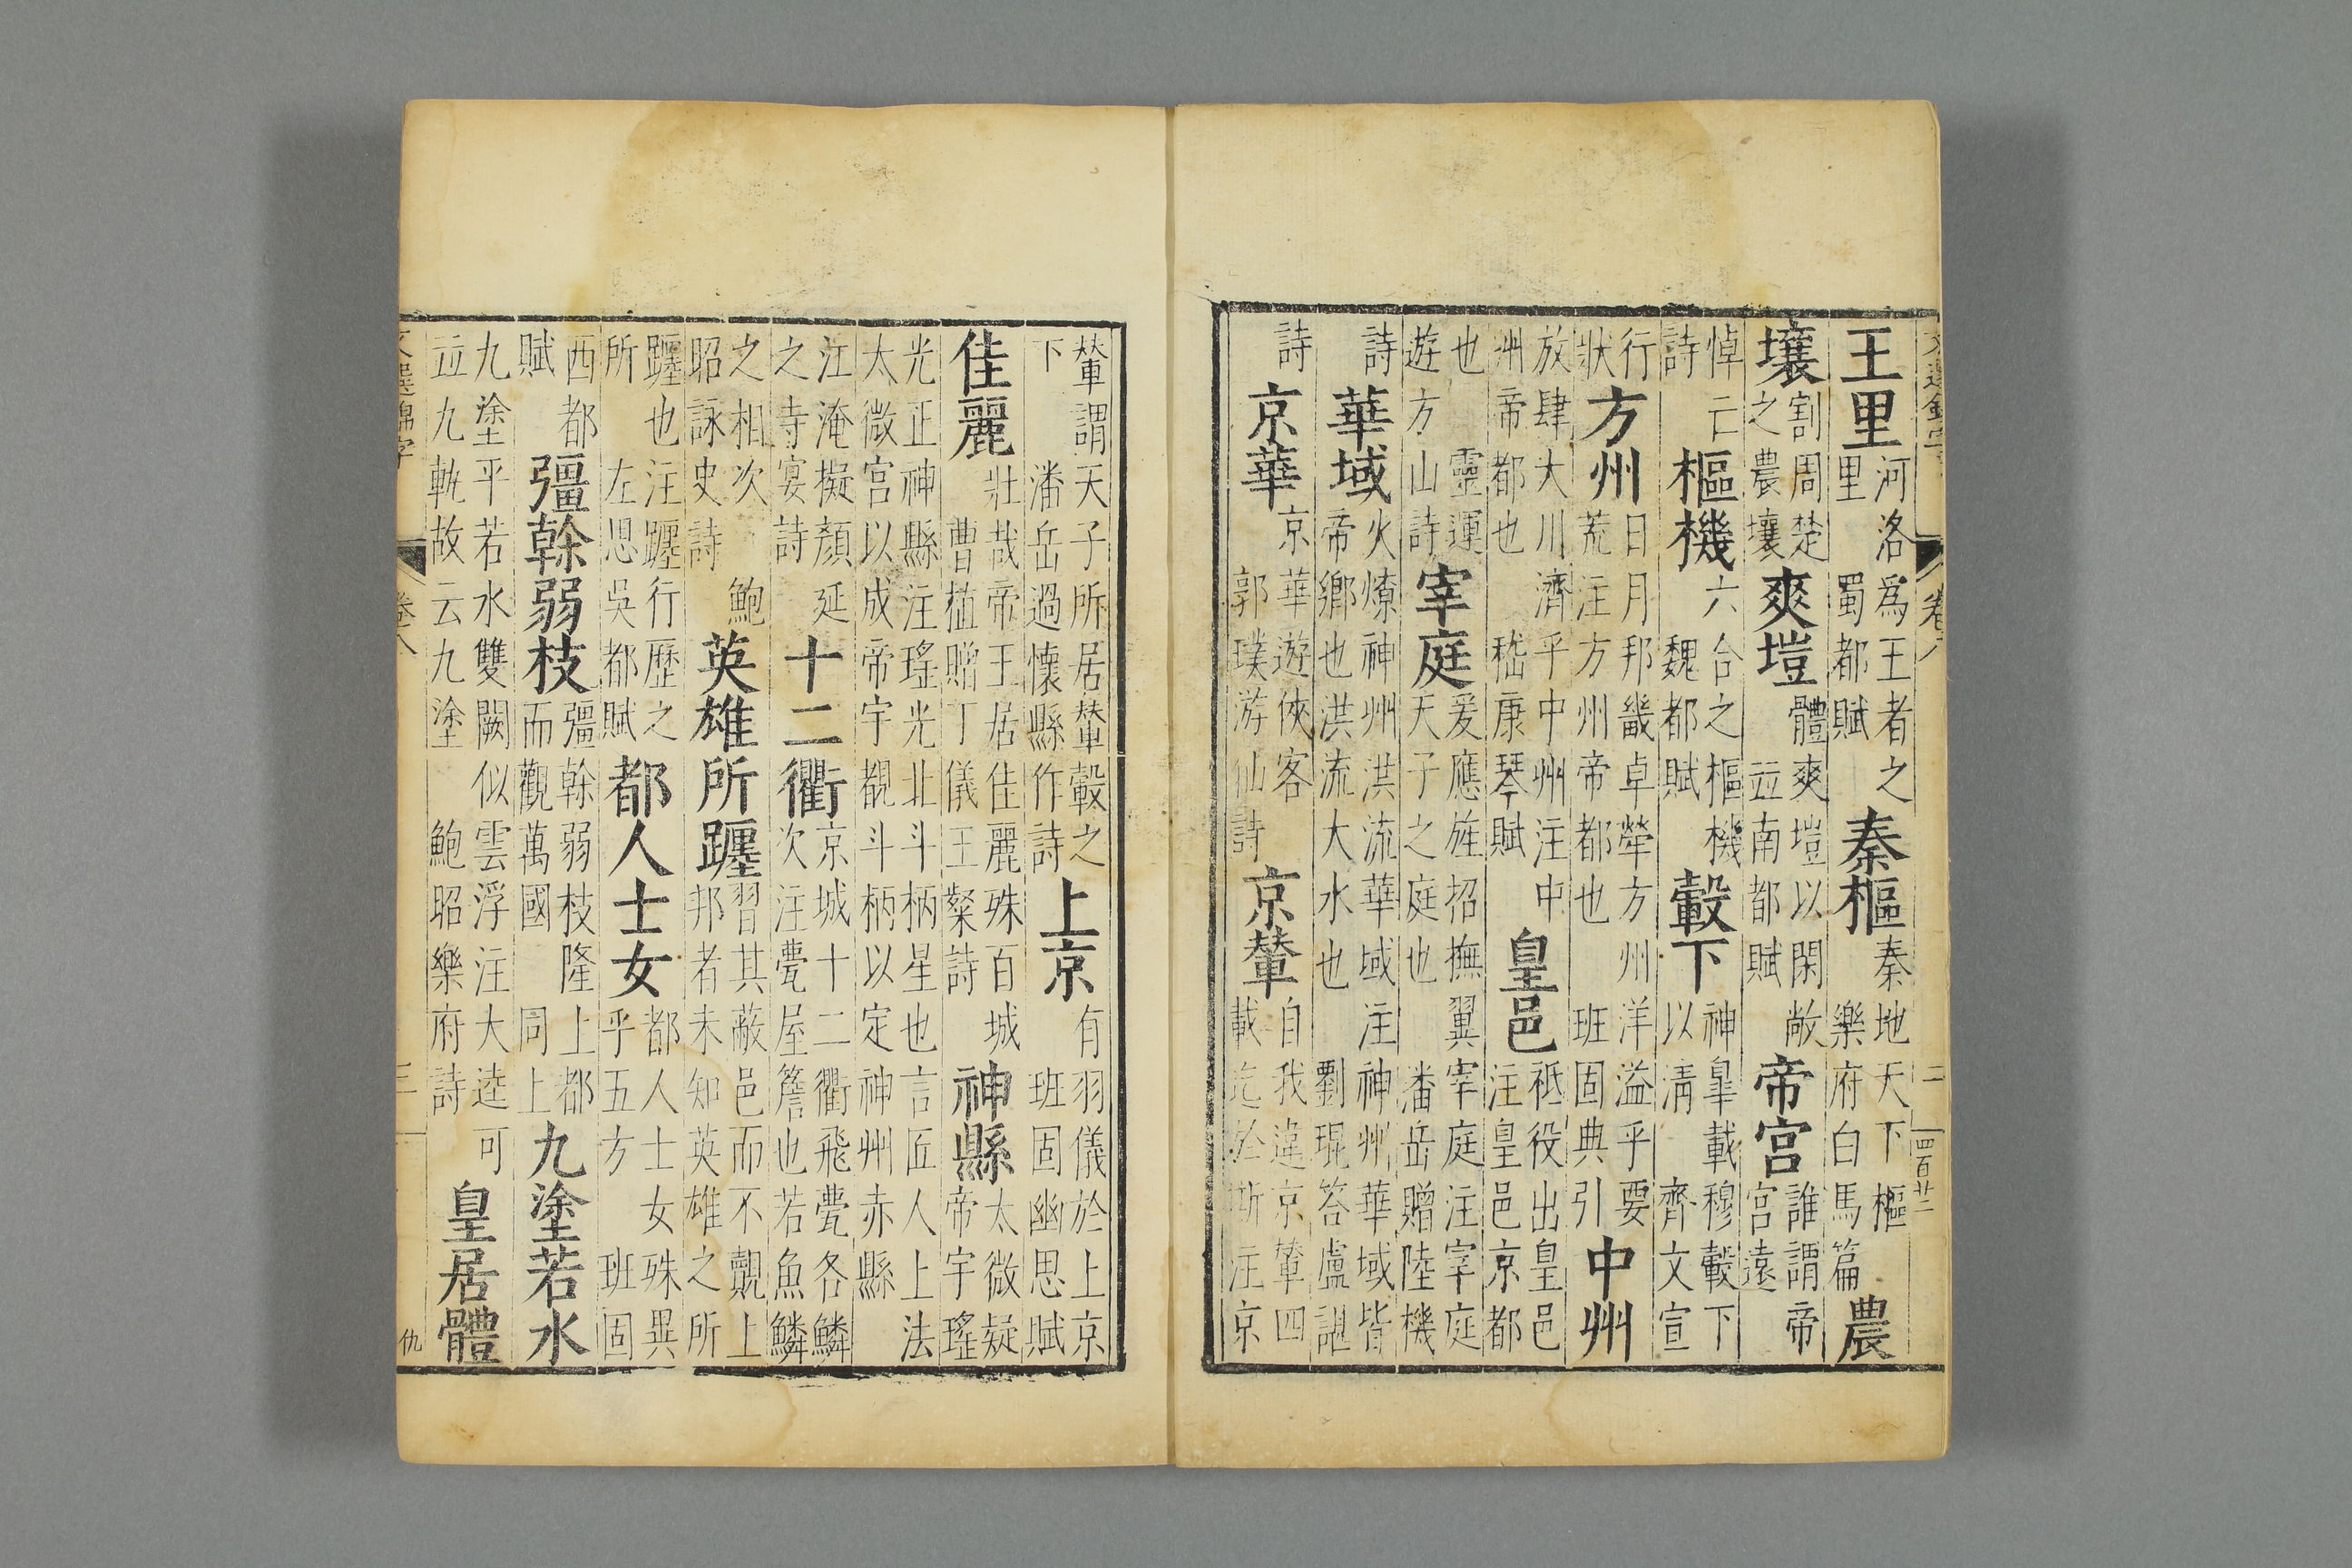 文選錦字 卷八 二 四百廿二
王里河洛爲王者之里 蜀都賦秦樞秦地天下樞 樂府白馬篇農
壤割周楚之農壤爽塏體爽塏以閑敞 並南都賦帝宮誰謂帝宮遠
悼亡詩樞機六合之樞機 魏都賦轂下神皐載穆轂下以清 齊文宣
行狀方州日月邦畿卓犖方州洋溢乎要荒注方州帝都也 班固典引中州
放肆大川濟乎中州注中洲帝都也 嵇康琴賦皇邑祗役出皇邑注皇邑京都
也 靈運遊方山詩宰庭爰應旌招撫翼宰庭注宰庭天子之庭也 潘岳贈陸機
詩華域火燎神州洪流華域注神州華域皆帝鄉也洪流大水也 劉琨答盧諶
詩京華京華遊俠客 郭璞游仙詩京輦自我違京輦四載迄於斯注京
輦謂天子所居輦轂之下 潘岳過懷縣作詩上京有羽儀於上京 班固幽思賦
佳麗壯哉帝王居佳麗殊百城 曹植贈丁儀王粲詩神縣太微疑帝宇瑤
光正神縣注瑤光北斗柄星也言匠人上法太微宮以成帝宇覩斗柄以定神州赤縣
江淹擬顏延之寺宴詩十二衢京城十二衢飛甍各鱗次注甍屋簷也若魚鱗
之相次 鮑昭詠史詩英雄所躔習其蔽邑而不覿上邦者未知英雄之所
躔也注躔行歷之所 左思吳都賦都人士女都人士女殊異乎五方 班固
西都賦彊幹弱枝彊幹弱枝隆上都而觀萬國 同上九塗若水
九塗平若水雙闕似雲浮注大逵可並九軌故云九塗 鮑昭樂府詩皇居體
文選錦字 卷八 三 仇